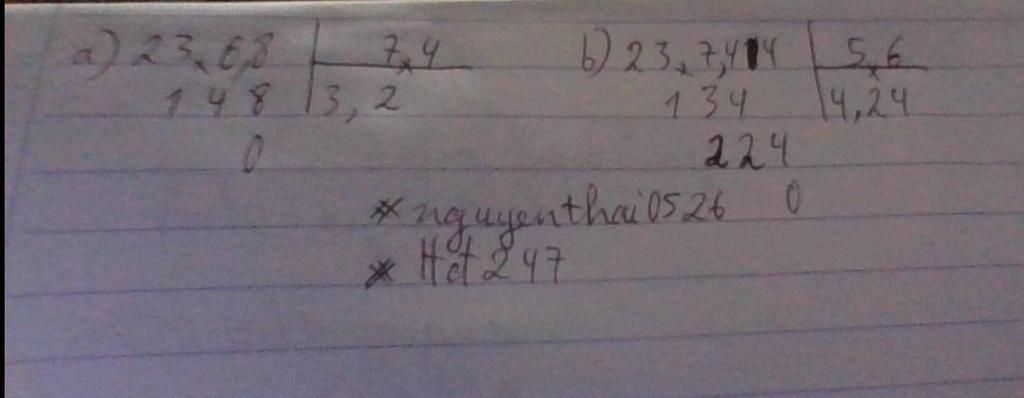 a) 23,6,8 7,4
148 3,2
0
b) 23,7,44 5,6
134 4,24
224
0
* nguyenthai0526
* Hdt247